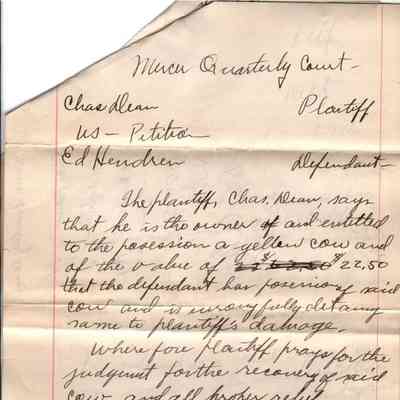 Mercer Quarterly Court -
Chas Dean Plantiff
us - Petition
Ed Hendren Defendant -
The plantiff, Chas. Dean, says
that he is the owner of and entitled
to the posession a yellow cow and
of the value of $22.50
that the defendant has posession of said
cow and is wrongfully detaing
same to plantiff's damage.
Where fore plantiff prays for the
judgment for the recovery of said
cow and all proper relief